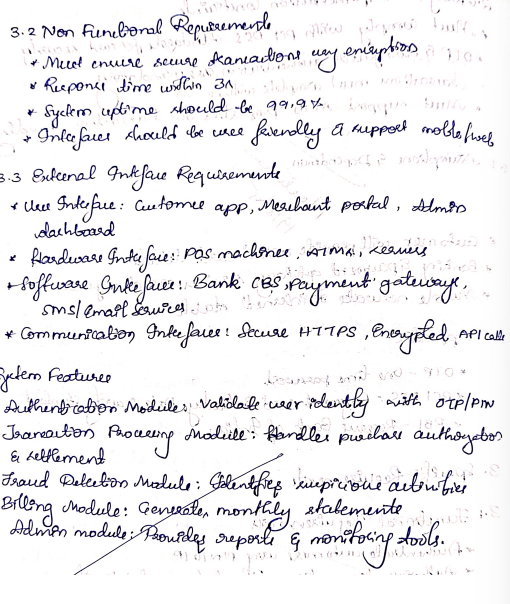 3.2 Non Functional Requirements
* Must ensure secure transactions using encryption
* Response time within 3s
* System uptime should be 99.9%
* Interfaces should be user friendly & support mobile/web
3.3 External Interface Requirements
* User Interface: Customer app, Merchant portal, Admin
dashboard
* Hardware Interfaces: POS machines, ATMs, servers
* Software Interfaces: Bank CBS, Payment gateways,
SMS/Email Services
* Communication Interfaces: Secure HTTPS, Encrypted API calls
System Features
Authentication Module: Validate user identity with OTP/PIN
Transaction Processing Module: Handles purchase authorization
& settlement
Fraud Detection Module: Identifies suspicious activities
Billing Module: Generates monthly statements
Admin module: Provides reports & monitoring tools.